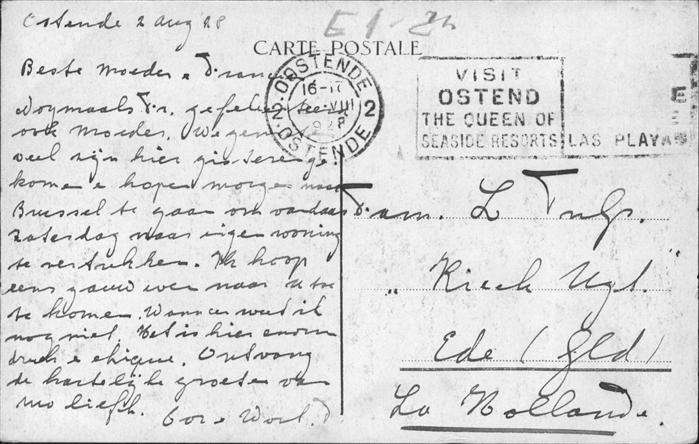 Ostende 2 Aug 28
E1-2h
CARTE POSTALE
Beste Moeder
Nogmaals gefeliciteerd
ook Moeder. Wegens
veel zijn hier gisteren ge-
komen e hopen morgen naar
Brussel te gaan om vandaar
Zaterdag naar eigen woning
te vertrekken. Ik hoop
eens gauw weer naar U toe
te komen. Wanneer weet ik
nog niet. Het is hier enorm
druk e chique. Ontvang
de hartelijke groeten van
mo liefh.
Cor e
OOSTENDE
16-17
VIII
1928
2
OSTENDE
VISIT
OSTEND
THE QUEEN OF
SEASIDE RESORTS
LAS PLAYAS
E
Fam. L
" Kieck
Ede (Gld)
La Hollande.